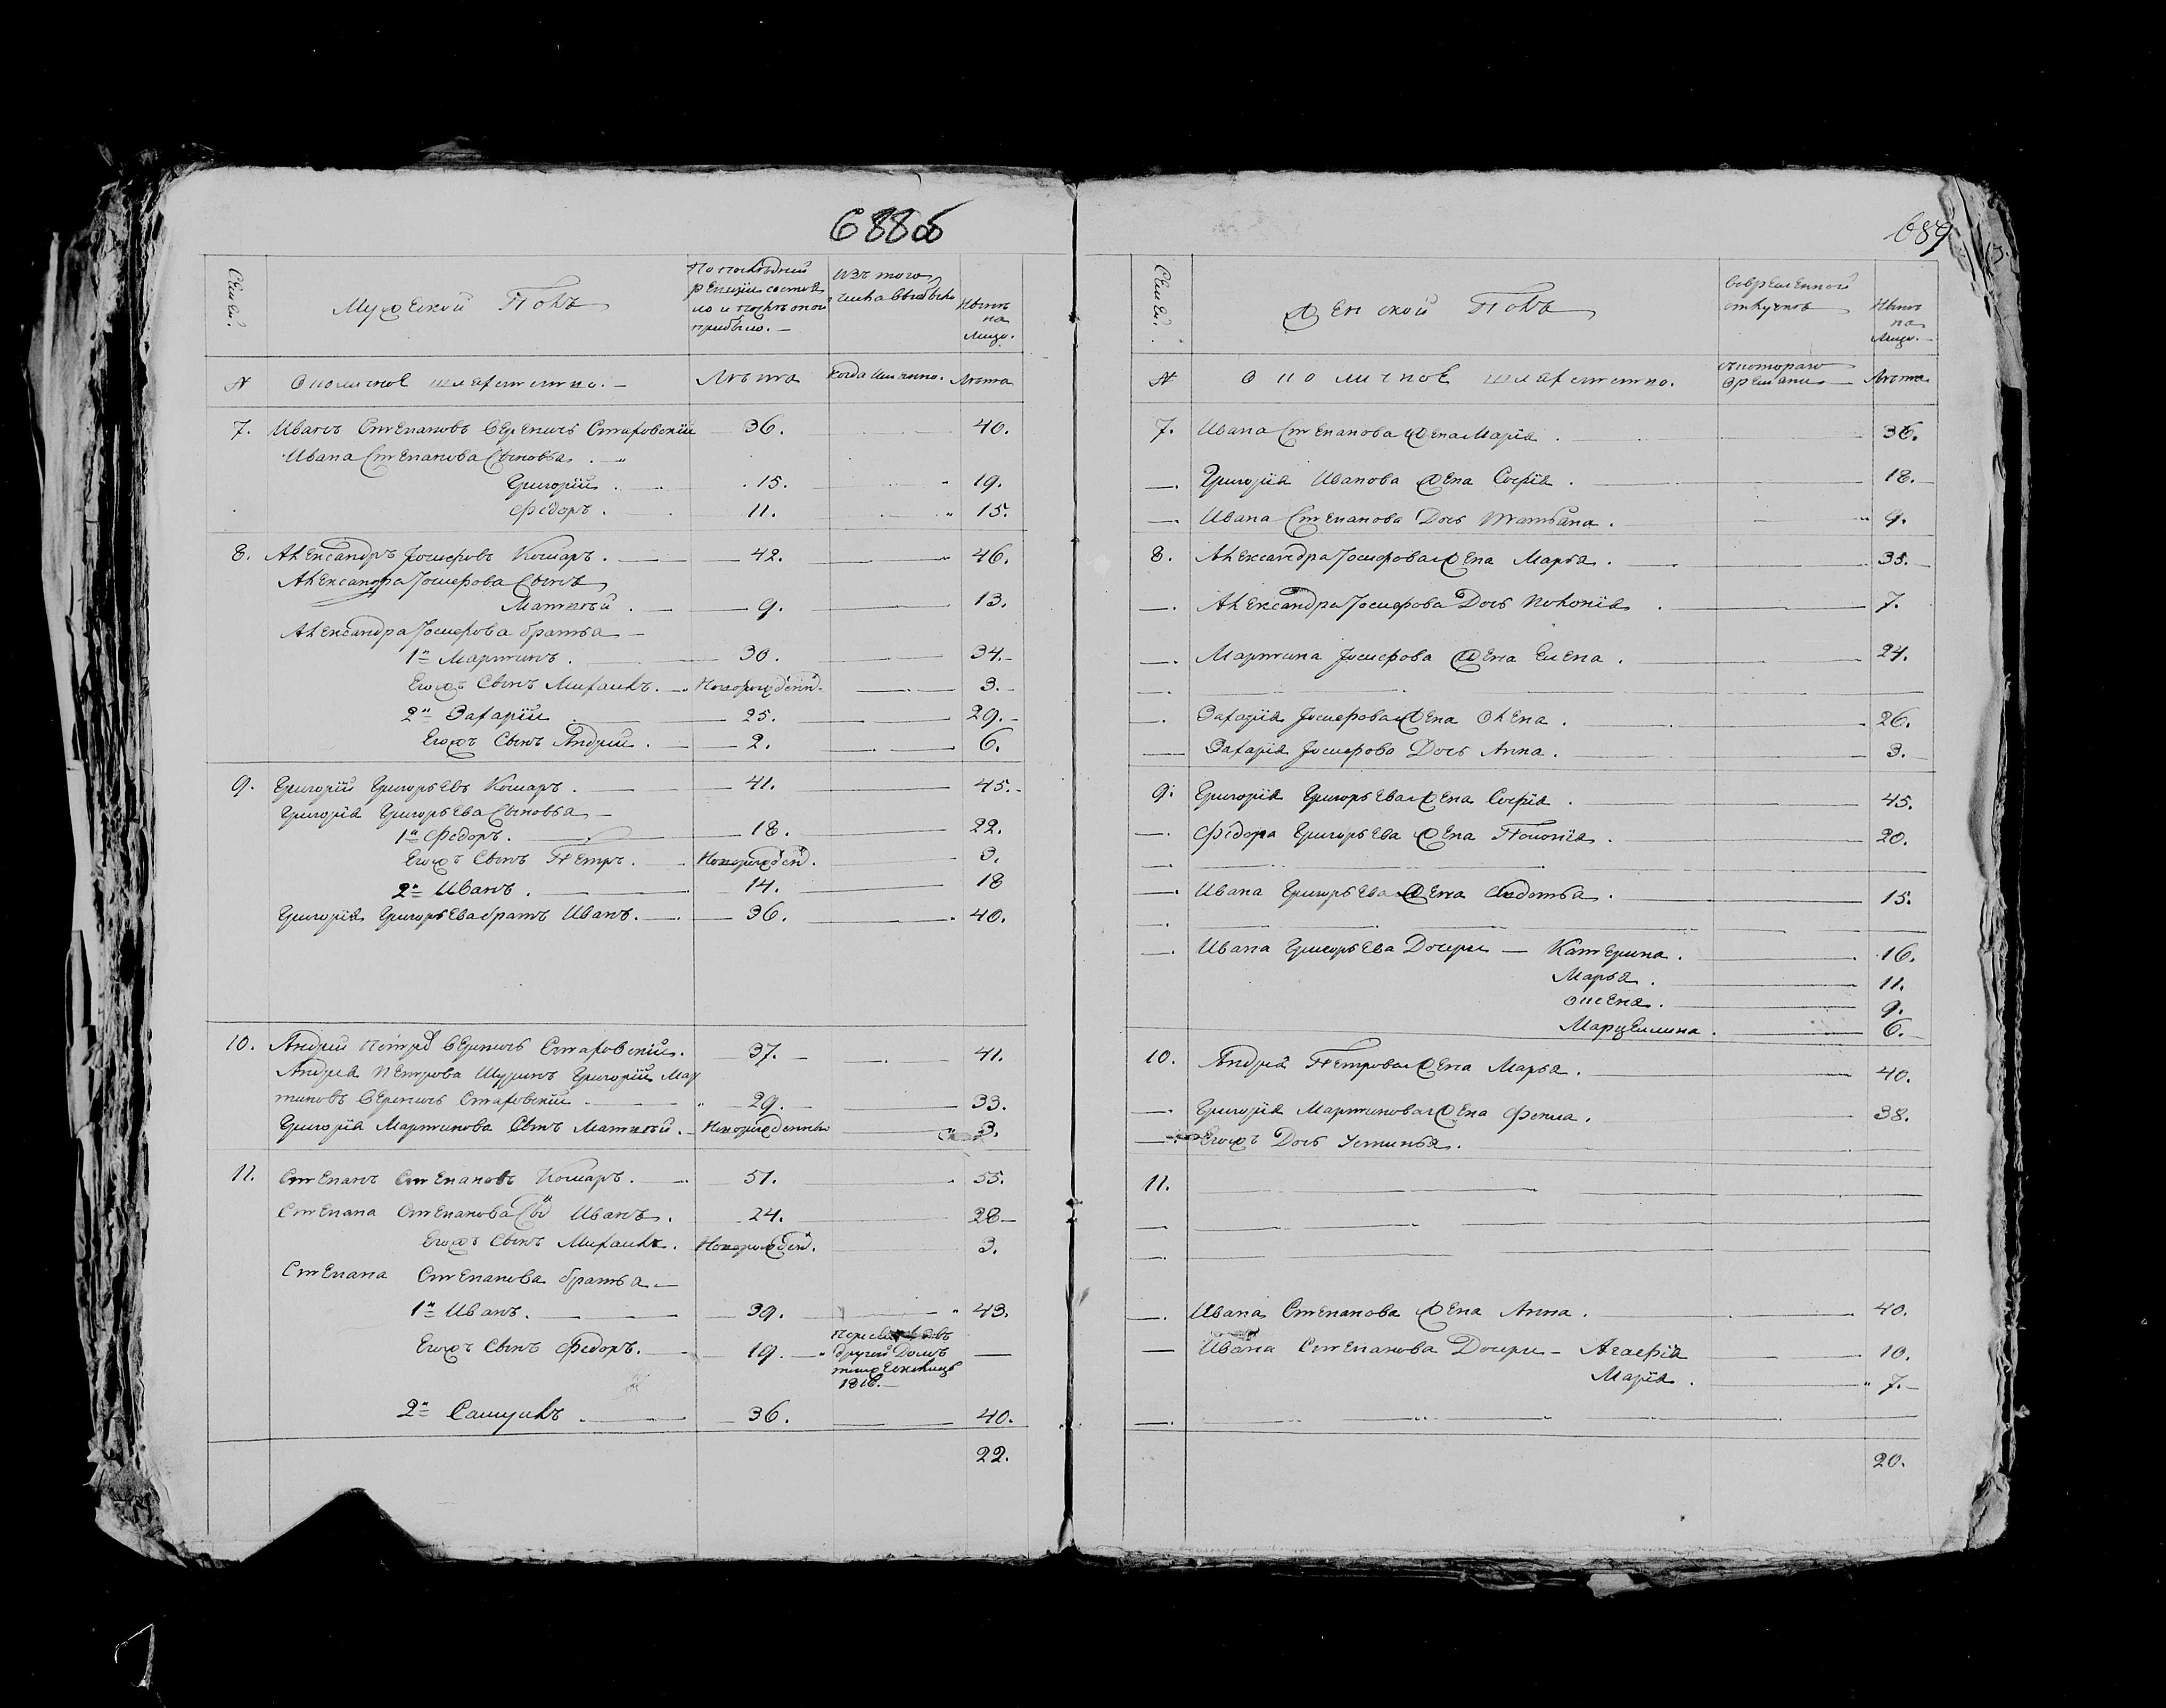 688об
Семей.
Мужеской Полъ
По последней
ревизіи состоя
ло и после оной
прибыло.
Изъ того
числа выбыло
Ныне
на
лицо.
№
Околичное шляхетство.
Лета
Когда имянно.
Лета
7. Иванъ Степановъ Вереничъ Стаховскій 36. 40.
Ивана Степанова Сыновья.
Григорій. 15. 19.
Федоръ. 11. 15.
8. Александръ Іосифовъ Комаръ. 42. 46.
Александра Іосифова Сынъ
Матвей. 9. 13.
Александра Іосифова братья
1й Мартинъ. 30. 34.
Егожъ Сынъ Михаилъ. Новорожден. 3.
2й Захарій 25. 29.
Егожъ Сынъ Андрей. 2. 6.
9. Григорій Григорьевъ Комаръ. 41. 45.
Григорія Григорьева Сыновья
1й Федоръ. 18. 22.
Егожъ Сынъ Петръ. Новорожден. 3.
2й Иванъ. 14. 18
Григорія Григорьева братъ Иванъ. 36. 40.
10. Андрей Петров Вереничъ Стаховскій. 37. 41.
Андрея Петрова Шуринъ Григорій Мар
тиновъ Вереничъ Стаховскій 29. 33.
Григорія Мартинова Сынъ Матвей. Новорожденны 3.
11. Степанъ Степановъ Комаръ. 51. 55.
Степана Степанова Сын Иванъ. 24. 28
Егожъ Сынъ Михаилъ. Новорожден. 3.
Степана Степанова братья
1й Иванъ. 39. 43.
Егожъ Сынъ Федоръ. 19.
другой Домъ
1816.
2й Самуилъ 36. 40.
22.
689
Семей.
Женской Полъ
Во временной
отлучкѣ
Ныне
на
лицо.
№
Околичное шляхетство.
съ котораго
времени
Лета
7. Ивана Степанова Жена Марія. 36.
Григорія Иванова Жена Софія. 18.
Ивана Степанова Дочь Татьяна. 9.
8. Александра Іосифова Жена Марья. 35.
Александра Іосифова Дочь Полонія. 7.
Мартина Іосифова Жена Елена. 24.
Захарія Іосифова Жена Олена. 26.
Захарія Іосифова Дочь Анна. 3.
9. Григорія Григорьева Жена Софія. 45.
Федора Григорьева Жена Полонія. 20.
Ивана Григорьева Жена Авдотья. 15.
Ивана Григорьева Дочери — Катерина. 16.
Марья. 11.
Олена. 9.
Марцелина. 6.
10. Андрея Петрова Жена Марья. 40.
Григорія Мартинова Жена Фекла. 38.
Егожъ Дочь Устинья.
11.
Ивана Степанова Жена Анна. 40.
Ивана Степанова Дочери — Агафія 10.
Марія. 7.
20.